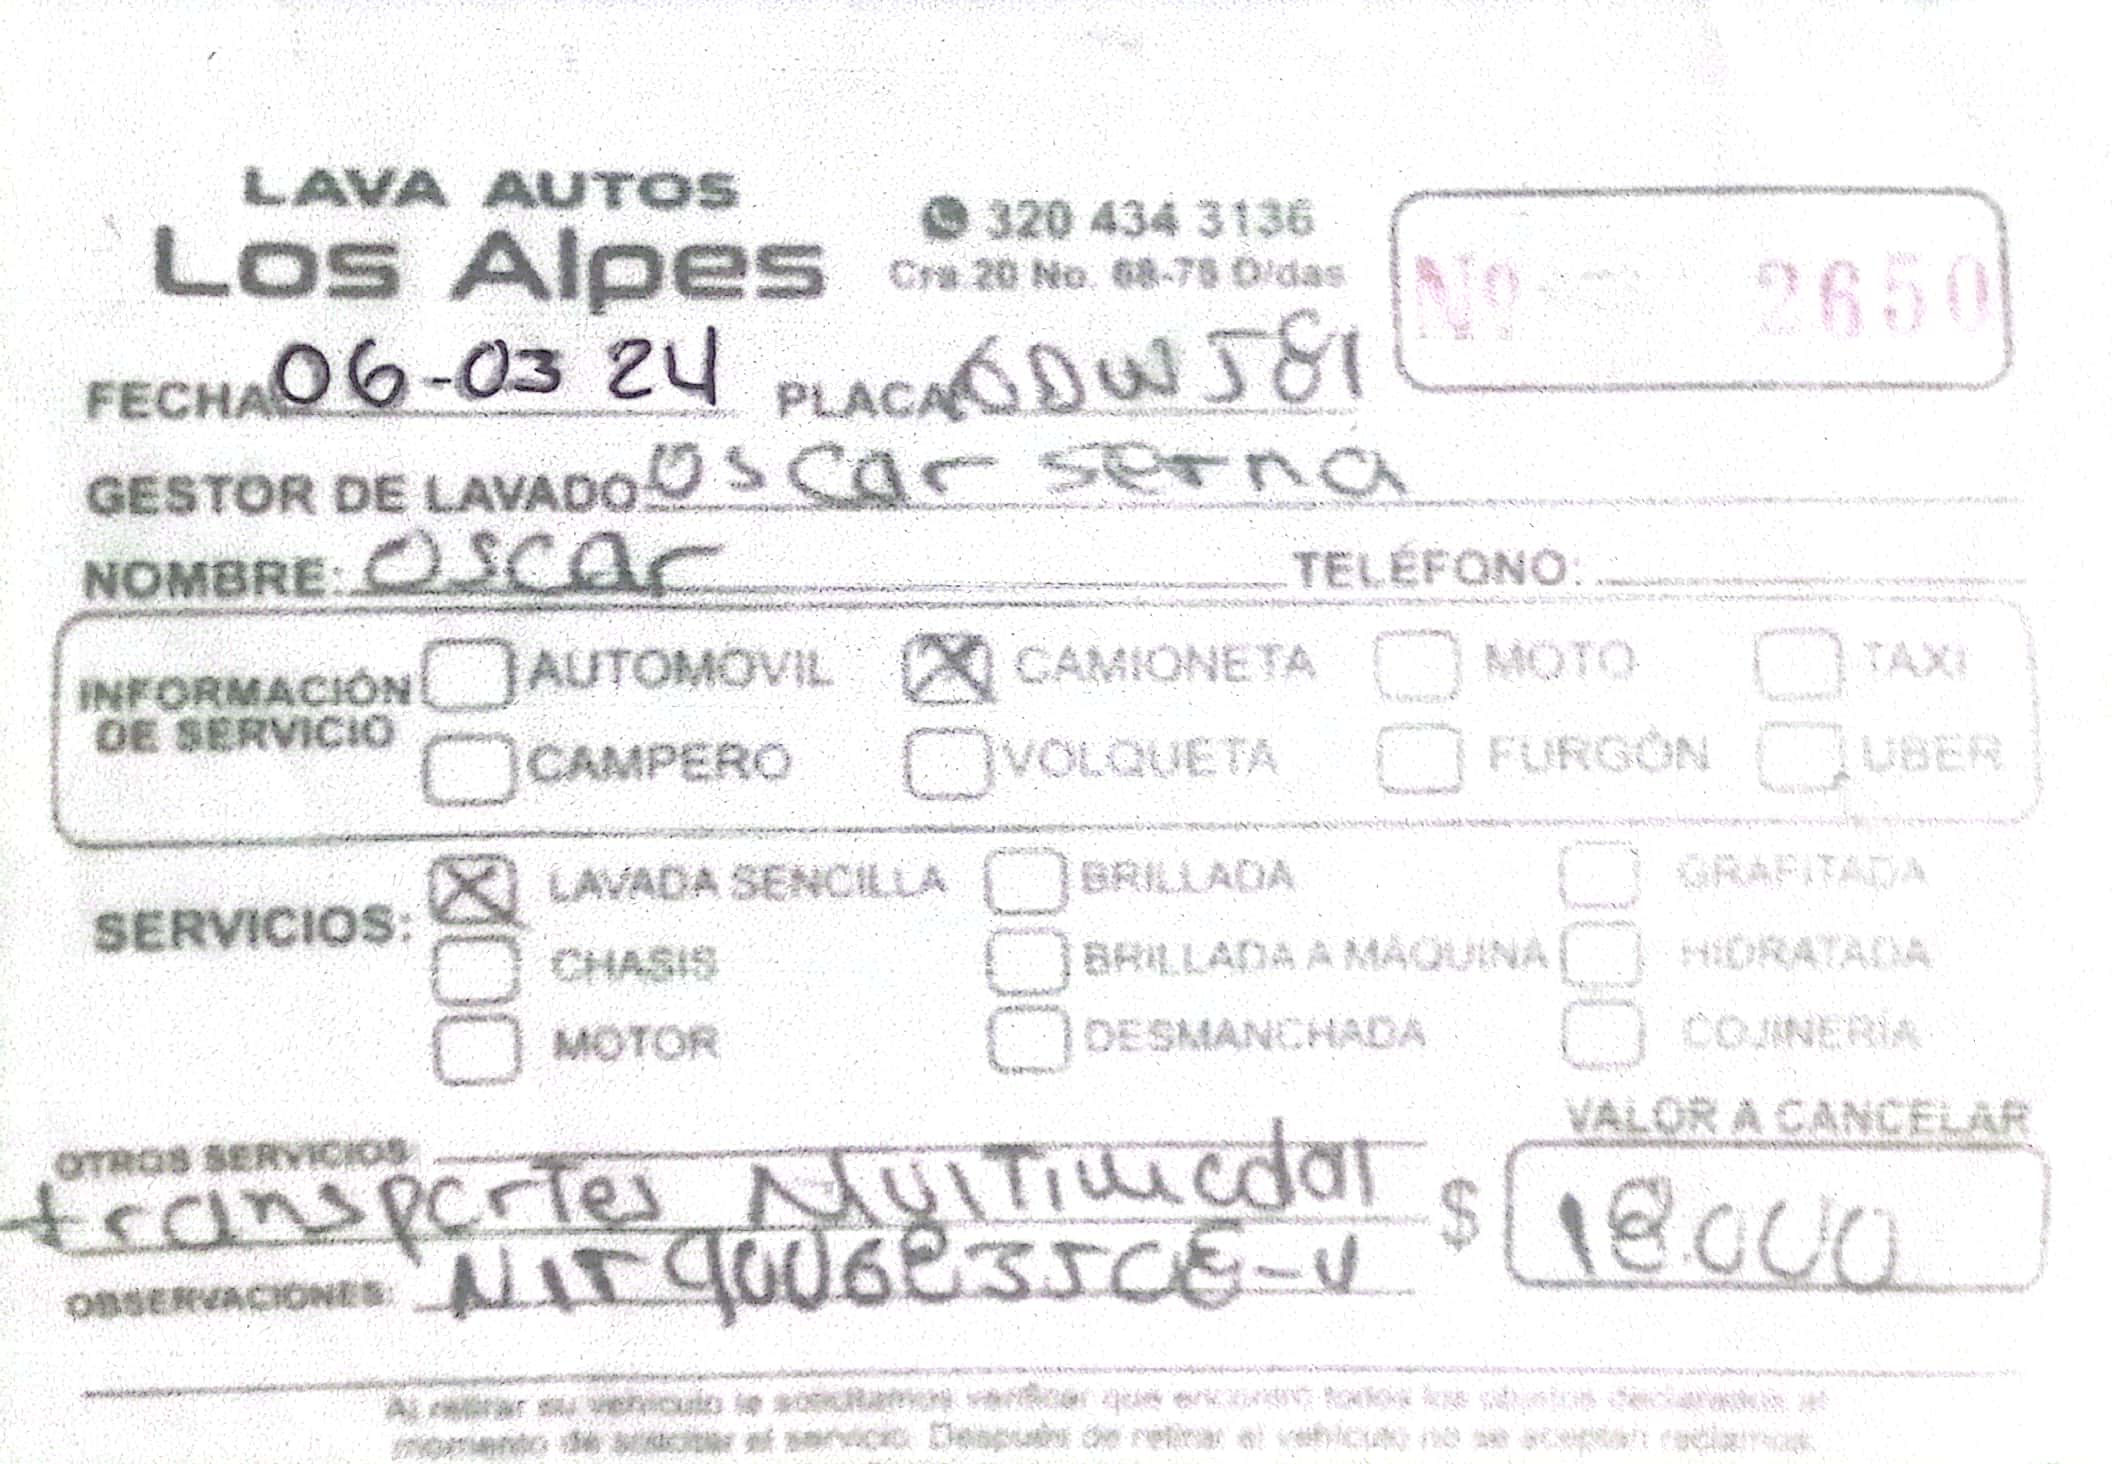 LAVA AUTOS
Los Alpes
320 434 3136
Cra 20 No. 68-78 D/das
Nº 2650
FECHA 06-03 24 PLACA DW581
GESTOR DE LAVADO Oscar serna
NOMBRE: Oscar TELÉFONO:
INFORMACIÓN DE SERVICIO
AUTOMOVIL CAMIONETA MOTO TAXI
CAMPERO VOLQUETA FURGÓN UBER
SERVICIOS:
LAVADA SENCILLA BRILLADA GRAFITADA
CHASIS BRILLADA A MÁQUINA HIDRATADA
MOTOR DESMANCHADA COJINERÍA
VALOR A CANCELAR
OTROS SERVICIOS:
transportes Multimodal $ 18.000
OBSERVACIONES: NIT
Al retirar su vehículo le solicitamos verificar que encontró todos los objetos declarados al
momento de solicitar el servicio. Después de retirar el vehículo no se aceptan reclamos.